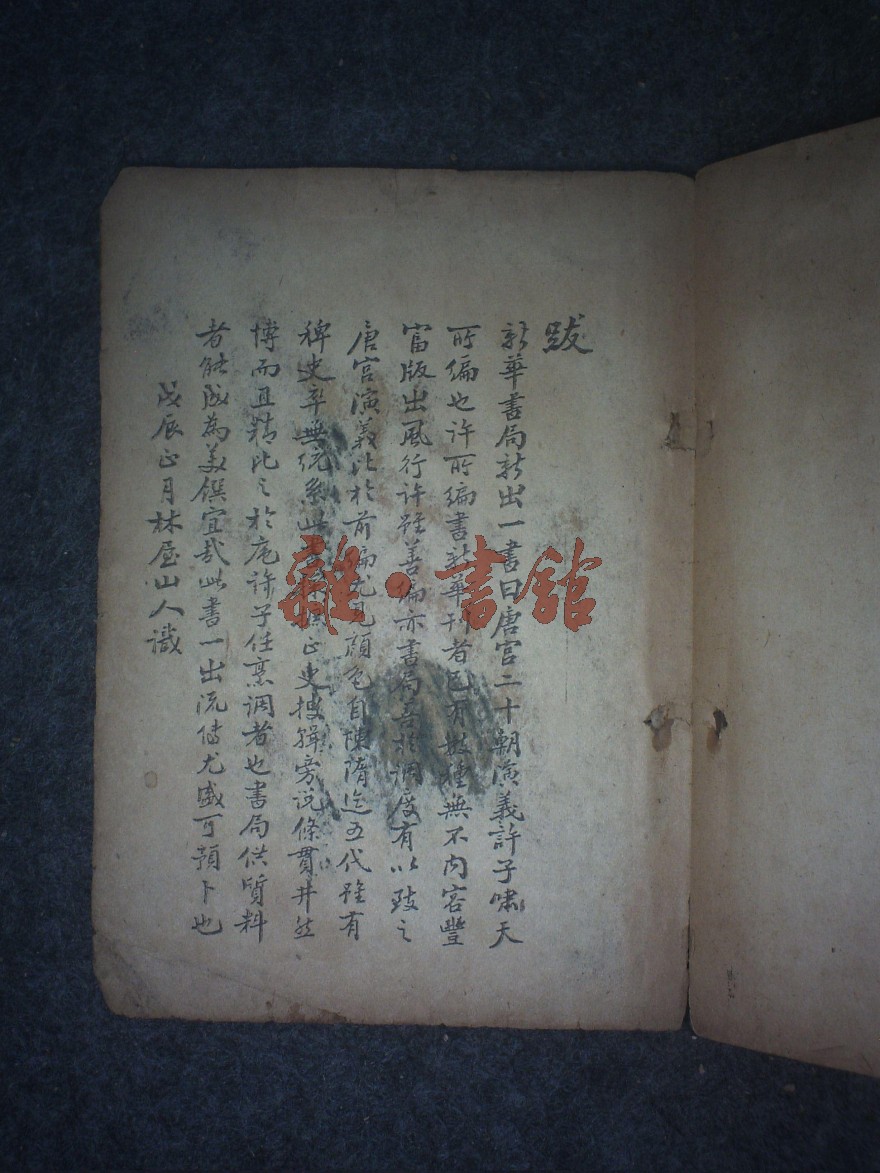 跋
新華書局新出一書曰唐宫二十朝演義許子嘯天
所編也許所編書新華刊者已有數種無不内容豐
富版出風行許雖善編亦書局善於調度有以致之
唐宫演義比於前編尤見顔色自陳隋迄五代雖有
稗史卒無統系此書根據正史搜輯旁说條貫井然
博而且精比之於庖許子任烹调者也書局供質料
者能成為美饌宜哉此書一出流傳尤盛可預卜也
戊辰正月林屋山人識
雜·書館